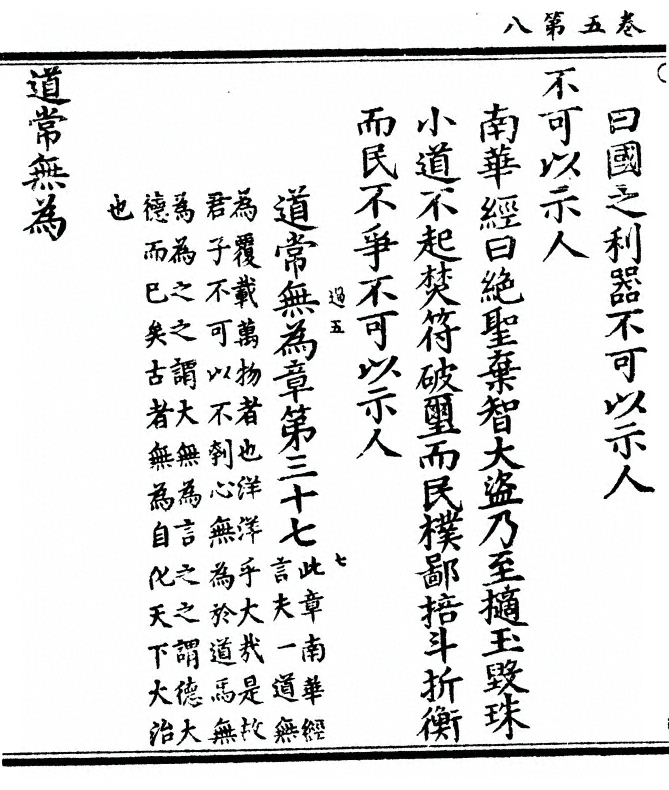 卷五第八
曰國之利器不可以示人
不可以示人
南華經曰絕聖棄智大盜乃至擿玉毀珠
小道不起焚符破璽而民樸鄙掊斗折衡
而民不爭不可以示人
過五
七
道常無為章第三十七
此章南華經
言夫一道無
為覆載萬物者也洋洋乎大哉是故
君子不可以不刳心無為於道焉無
為為之之謂大無為言之之謂德大
德而已矣古者無為自化天下大治
也
道常無為